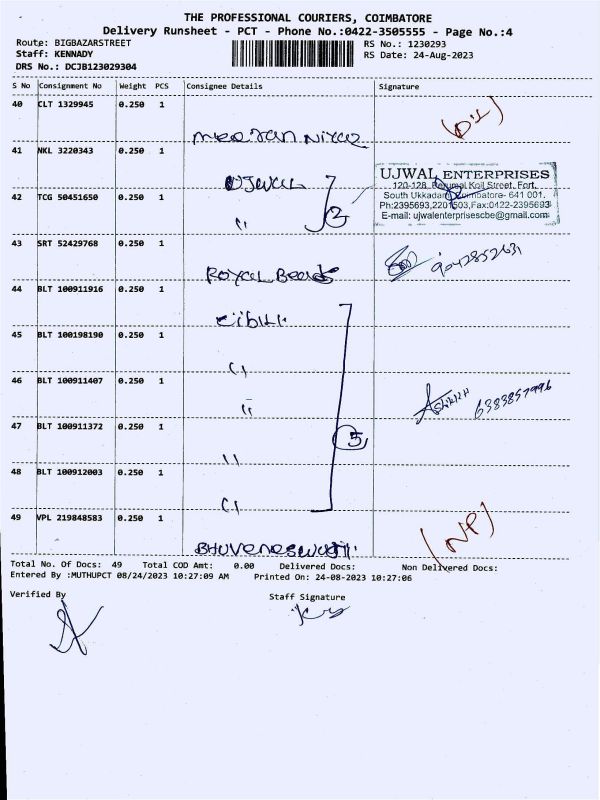 THE PROFESSIONAL COURIERS, COIMBATORE
Delivery Runsheet - PCT - Phone No.:0422-3505555 - Page No.:4
Route: BIGBAZARSTREET
Staff: KENNADY
DRS No.: DCJB123029304
RS No.: 1230293
RS Date: 24-Aug-2023
S No Consignment No Weight PCS Consignee Details Signature
40 CLT 1329945 0.250 1
41 NKL 3220343 0.250 1
Ujwal
UJWAL ENTERPRISES
120-128, Perumal Koil Street, Fort,
South Ukkadam, Coimbatore- 641 001.
Ph:2395693,2201503,Fax:0422-2395693
E-mail: ujwalenterprisescbe@gmail.com
42 TCG 50451650 0.250 1
" 2
43 SRT 52429768 0.250 1
Royal Beards
44 BLT 100911916 0.250 1
45 BLT 100198190 0.250 1
"
46 BLT 100911407 0.250 1
"
6383857996
47 BLT 100911372 0.250 1
5
"
48 BLT 100912003 0.250 1
"
49 VPL 219848583 0.250 1
(NP)
Bhuveneswari
Total No. Of Docs: 49 Total COD Amt: 0.00 Delivered Docs: Non Delivered Docs:
Entered By :MUTHUPCT 08/24/2023 10:27:09 AM Printed On: 24-08-2023 10:27:06
Verified By
Staff Signature